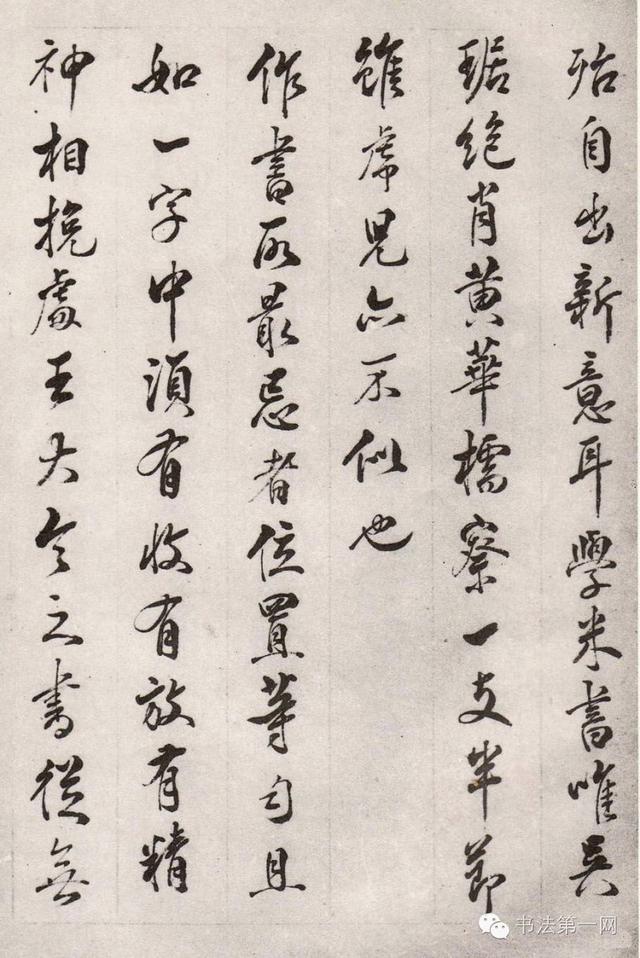 殆自出新意耳學米書唯吳
琚絕肖黃華樗寮一支半節
雖虎兒亦不似也
作書所最忌者位置等勻且
如一字中須有收有放有精
神相挽處王大令之書從無
书法第一网